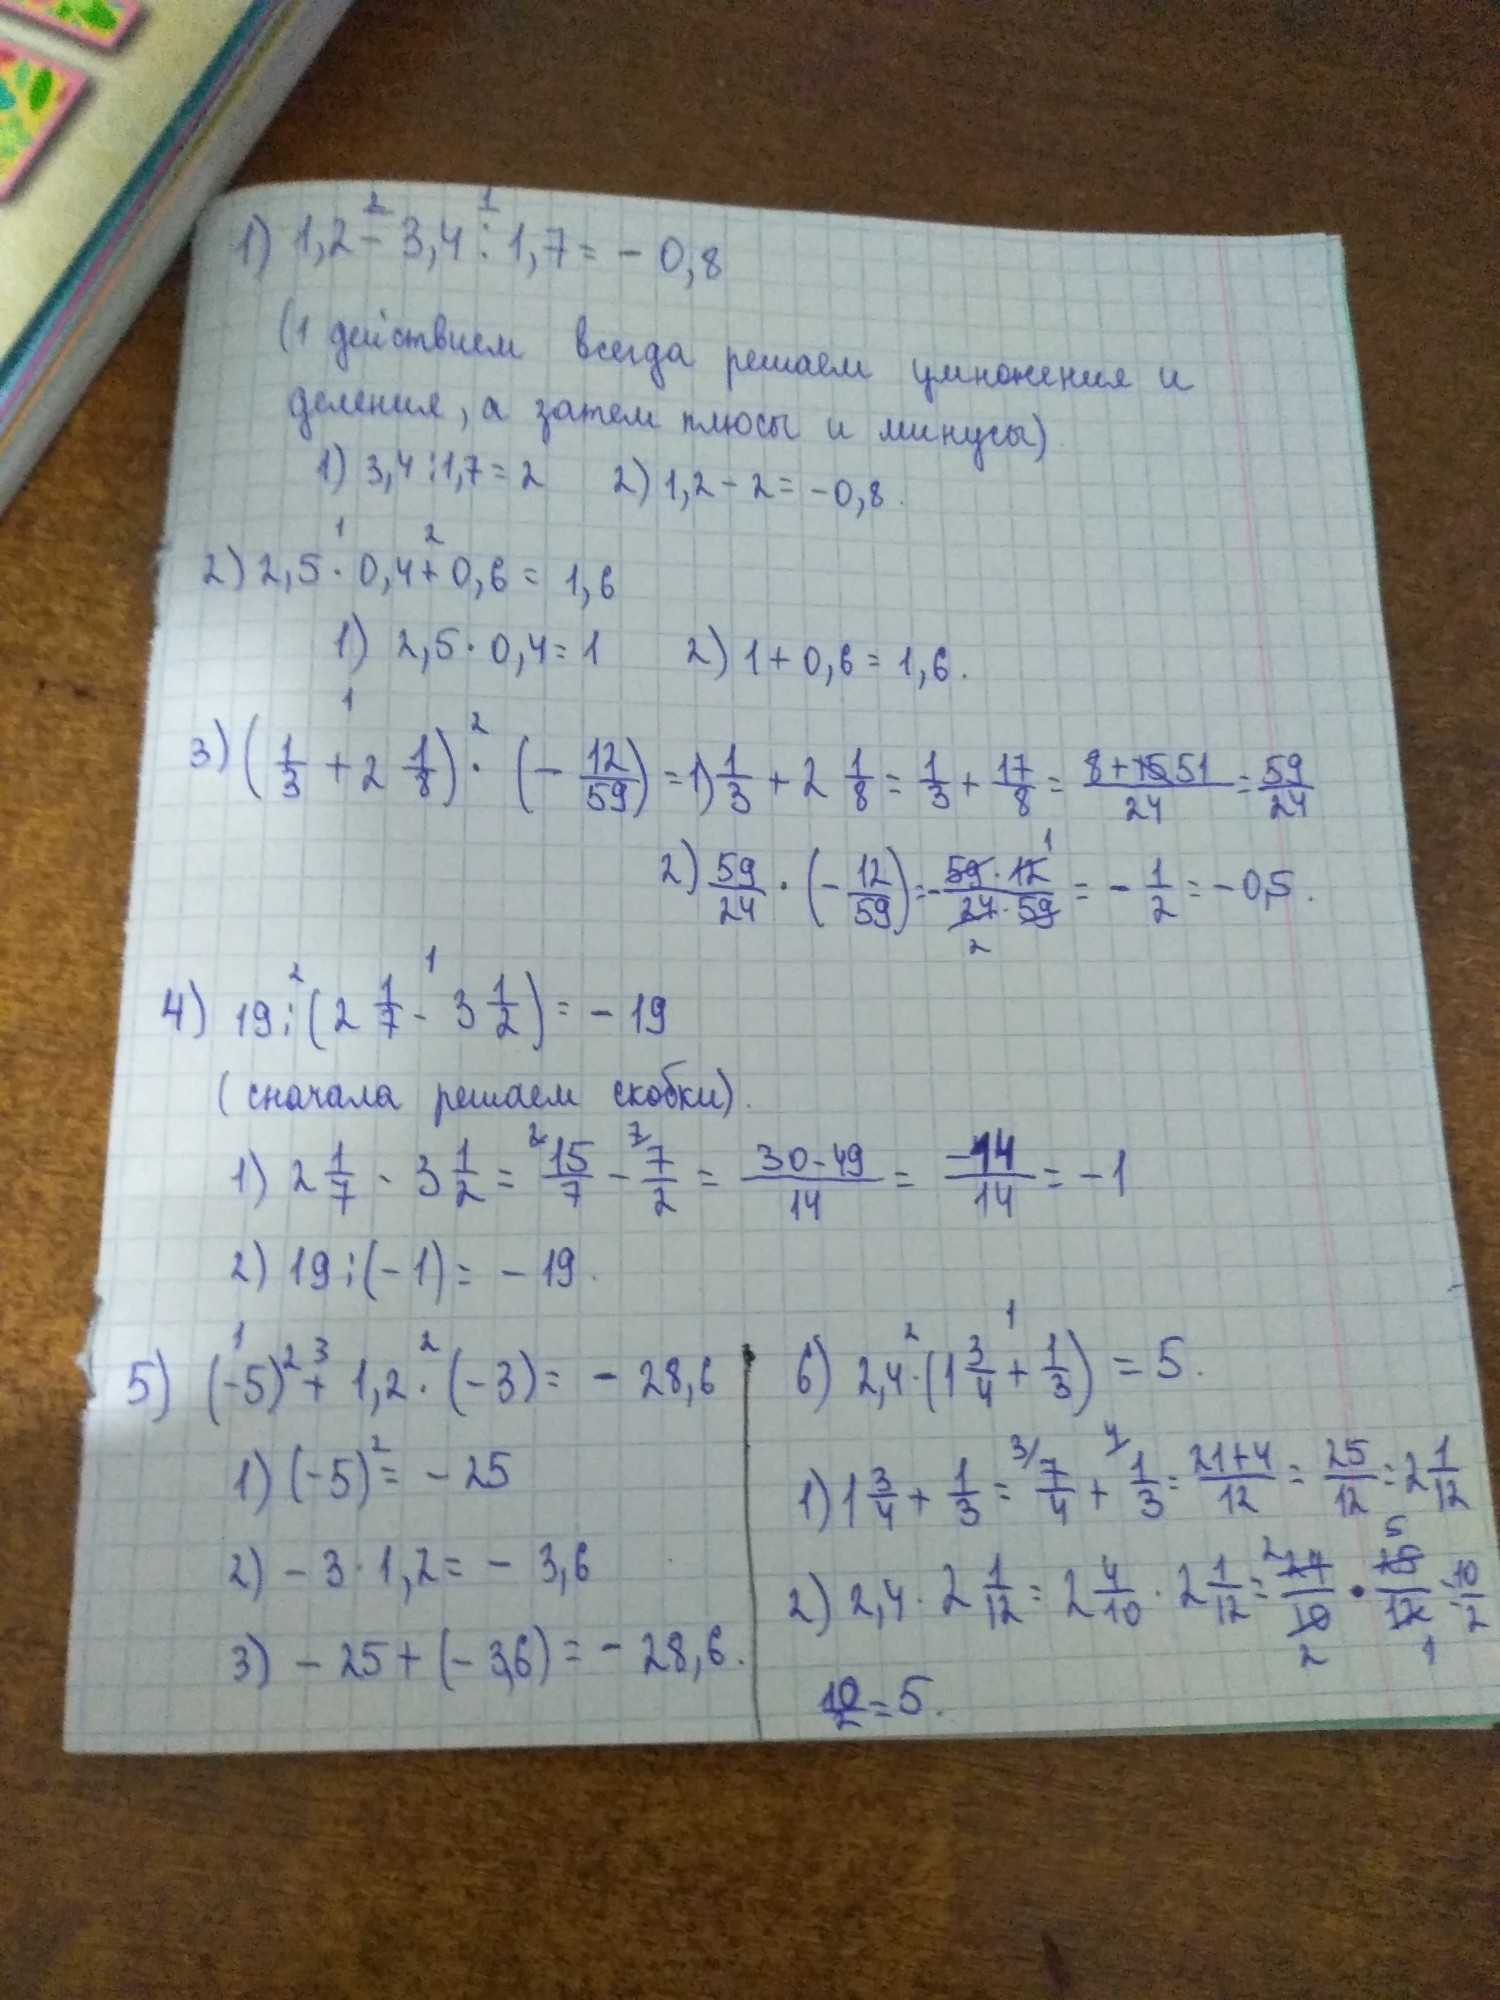 1) 1,2 - 3,4 : 1,7 = - 0,8
(1 действием всегда решаем умножения и
деления, а затем плюсы и минусы)
1) 3,4 : 1,7 = 2 2) 1,2 - 2 = -0,8.
2) 2,5 · 0,4 + 0,6 = 1,6
1) 2,5 · 0,4 = 1 2) 1 + 0,6 = 1,6.
3) (1/3 + 2 1/8) · (- 12/59) = 1) 1/3 + 2 1/8 = 1/3 + 17/8 = 8+51/24 = 59/24
2) 59/24 · (- 12/59) = - 59 · 12/24 · 59 = - 1/2 = -0,5.
4) 19 : (2 1/7 - 3 1/2) = - 19
(сначала решаем скобки).
1) 2 1/7 - 3 1/2 = 15/7 - 7/2 = 30-49/14 = -14/14 = -1
2) 19 : (-1) = - 19.
5) (-5)² + 1,2 · (-3) = - 28,6
1) (-5)² = - 25
2) - 3 · 1,2 = - 3,6
3) - 25 + (- 3,6) = - 28,6.
6) 2,4 · (1 3/4 + 1/3) = 5.
1) 1 3/4 + 1/3 = 7/4 + 1/3 = 21+4/12 = 25/12 = 2 1/12
2) 2,4 · 2 1/12 = 2 4/10 · 2 1/12 = 24/10 · 25/12 = 10/2
10/2 = 5.